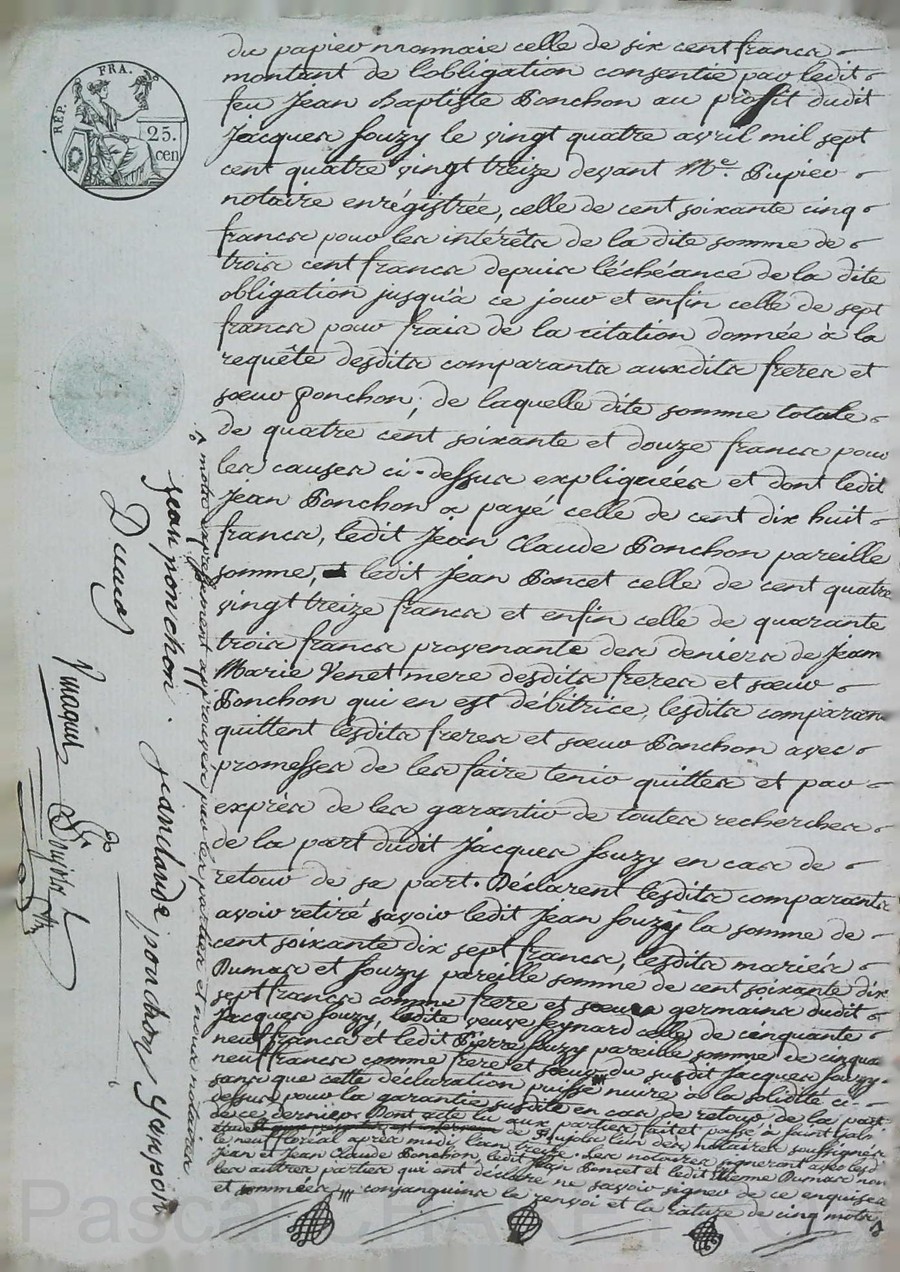 RÉP. FRA.
25.
cen
du papier monnaie celle de six cent francs
montant de l'obligation consentie par ledit
feu Jean Baptiste Ponchon au profit dudit
Jacques Souzy le vingt quatre avril mil sept
cent quatre vingt treize devant Me. Pupier
notaire enrégistrée, celle de cent soixante cinq
francs pour les intérêts de la dite somme de
trois cent francs depuis l'échéance de la dite
obligation jusqu'à ce jour et enfin celle de sept
francs pour frais de la citation donnée à la
requête desdits comparants auxdits freres et
soeur Ponchon; de laquelle dite somme totale
de quatre cent soixante et douze francs pour
les causes ci-dessus expliquées et dont ledit
Jean Ponchon a payé celle de cent dix huit
francs, ledit Jean Claude Ponchon pareille
somme, ledit Jean Poncet celle de cent quatre
vingt treize francs et enfin celle de quarante
trois francs provenants des deniers de Jean
Marie Venet mere desdits freres et soeur
Ponchon qui en est débitrice, lesdits comparan
quittent lesdits freres et soeur Ponchon avec
promesses de les faire tenir quittes et par
exprès de les garantir de toutes recherches
de la part dudit Jacques Souzy en cas de
retour de sa part. Déclarent lesdits comparants
avoir retiré savoir ledit Jean Souzy la somme de
cent soixante dix sept francs, lesdits mariés
Dumas et Souzy pareille somme de cent soixante dix
sept francs comme frere et soeur germains dudit
Jacques Souzy, ladite veuve celle de cinquante
neuf francs et ledit Pierre Souzy pareille somme de cinqua
neuf francs comme frere et soeur du susdit Jacques Souzy.
sans que cette déclaration puisse nuire à la solidité ci
dessus pour la garantie susdite en cas de retour de la part
de ce dernier. Dont acte lu aux parties fait et passé à
de Pujolas l'un des notaires soussignés
le neuf floréal après midi l'an treize. les notaires signeront avec lesd
Jean et Jean Claude Ponchon, ledit Jean Poncet et ledit Etienne Dumas non
les autres parties qui ont déclaré ne savoir signer de ce enquises
et sommées consanguins le renvoi et la rature de cinq mots
approuvés par les parties et nous notaires
jean ponchon . jean claude ponchon
Dumas